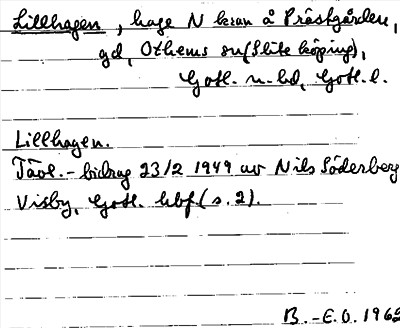 Lillhagen, hage N kvarn å Prästgården,
gd, Othems sn (Slite köping),
Gotl. n. hd, Gotl. l.
Lillhagen.
Tävl.-bidrag 23/2 1949 av Nils Söderberg
Visby, Gotl. hbf. (s. 2).
B.-E.O. 1962